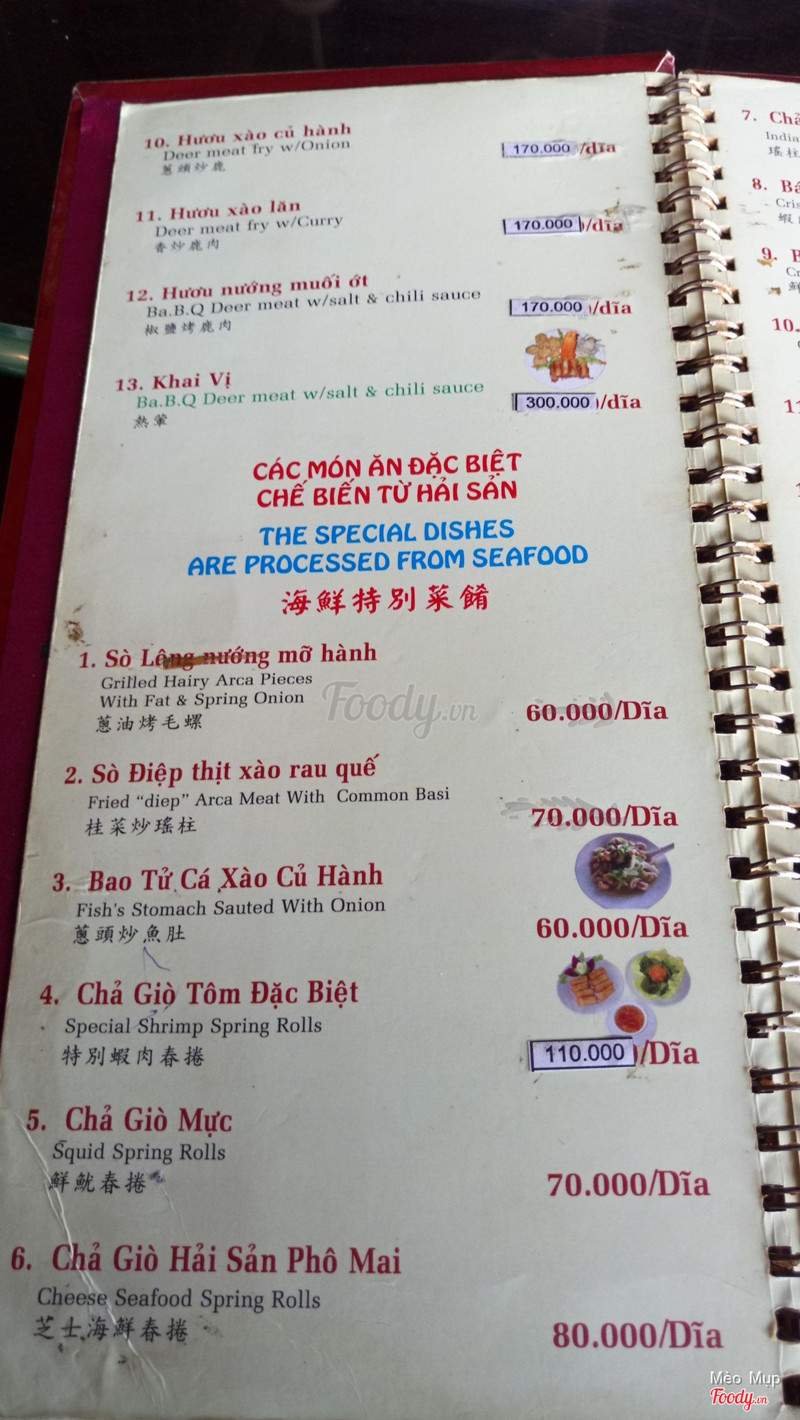 10. Hươu xào củ hành
Deer meat fry w/Onion
蔥頭炒鹿
170.000 /dĩa
11. Hươu xào lăn
Deer meat fry w/Curry
香炒鹿肉
170.000 /dĩa
12. Hươu nướng muối ớt
Ba.B.Q Deer meat w/salt & chili sauce
椒鹽烤鹿肉
170.000 /dĩa
13. Khai Vị
Ba.B.Q Deer meat w/salt & chili sauce
熱葷
300.000 /dĩa
CÁC MÓN ĂN ĐẶC BIỆT
CHẾ BIẾN TỪ HẢI SẢN
THE SPECIAL DISHES
ARE PROCESSED FROM SEAFOOD
海鮮特別菜餚
1. Sò Lông nướng mỡ hành
Grilled Hairy Arca Pieces
With Fat & Spring Onion
蔥油烤毛螺
60.000/Dĩa
2. Sò Điệp thịt xào rau quế
Fried "diep" Arca Meat With Common Basi
桂菜炒瑤柱
70.000/Dĩa
3. Bao Tử Cá Xào Củ Hành
Fish's Stomach Sauted With Onion
蔥頭炒魚肚
60.000/Dĩa
4. Chả Giò Tôm Đặc Biệt
Special Shrimp Spring Rolls
特別蝦肉春捲
110.000 /Dĩa
5. Chả Giò Mực
Squid Spring Rolls
鮮魷春捲
70.000/Dĩa
6. Chả Giò Hải Sản Phô Mai
Cheese Seafood Spring Rolls
芝士海鮮春捲
80.000/Dĩa
7. Chả
India
瑤柱
8.
Cris
蝦
9.
10.
Foody.vn
Mèo Mụp
Foody.vn